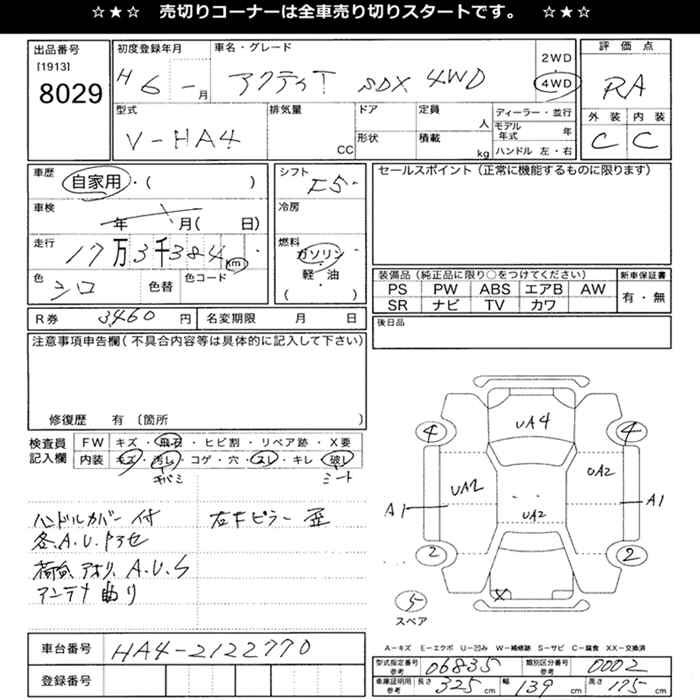 ☆★☆ 売切りコーナーは全車売り切りスタートです。 ☆★☆
出品番号
[1913]
8029
初度登録年月
H 6 - 月
車名・グレード
アクティT SDX 4WD
2WD
4WD
評価点
RA
外装 内装
C C
型式
V-HA4
排気量
CC
ドア
形状
定員
人
積載
kg
ディーラー・並行
モデル年式 年
ハンドル 左・右
車歴
自家用・( )
車検
年 月( 日)
走行
17万3千384 km
色
シロ
色替
色コード
シフト
F5
冷房
燃料
ガソリン
・
軽・油
( )
セールスポイント(正常に機能するものに限ります)
装備品(純正品に限り○をつけてください)
PS PW ABS エアB AW
SR ナビ TV カワ
新車保証書
有・無
R券 3460 円
名変期限 月 日
後日品
注意事項申告欄(不具合内容等は具体的に記入して下さい)
修復歴 有〔箇所 〕
検査員記入欄
FW キズ・飛石・ヒビ割・リペア跡・X要
内装 キズ・汚れ・コゲ・穴・スレ・キレ・破レ
キバミ
シート
ハンドルカバー付
各A.U.P3セ
荷台アオリ A.U.S
アンテナ曲り
右キピラー歪
4 UA4 4
UA2 UA2
A1 UA2 A1
2 2
X
5
スペア
A-キズ E-エクボ U-凹み W-補修跡 S-サビ C-腐食 XX-交換済
車台番号 HA4-2122770
登録番号
型式指定番号 参考 06835
類別区分番号 参考 0002
車庫証明用 参考 長さ 325 cm 幅 139 cm 高さ 175 cm